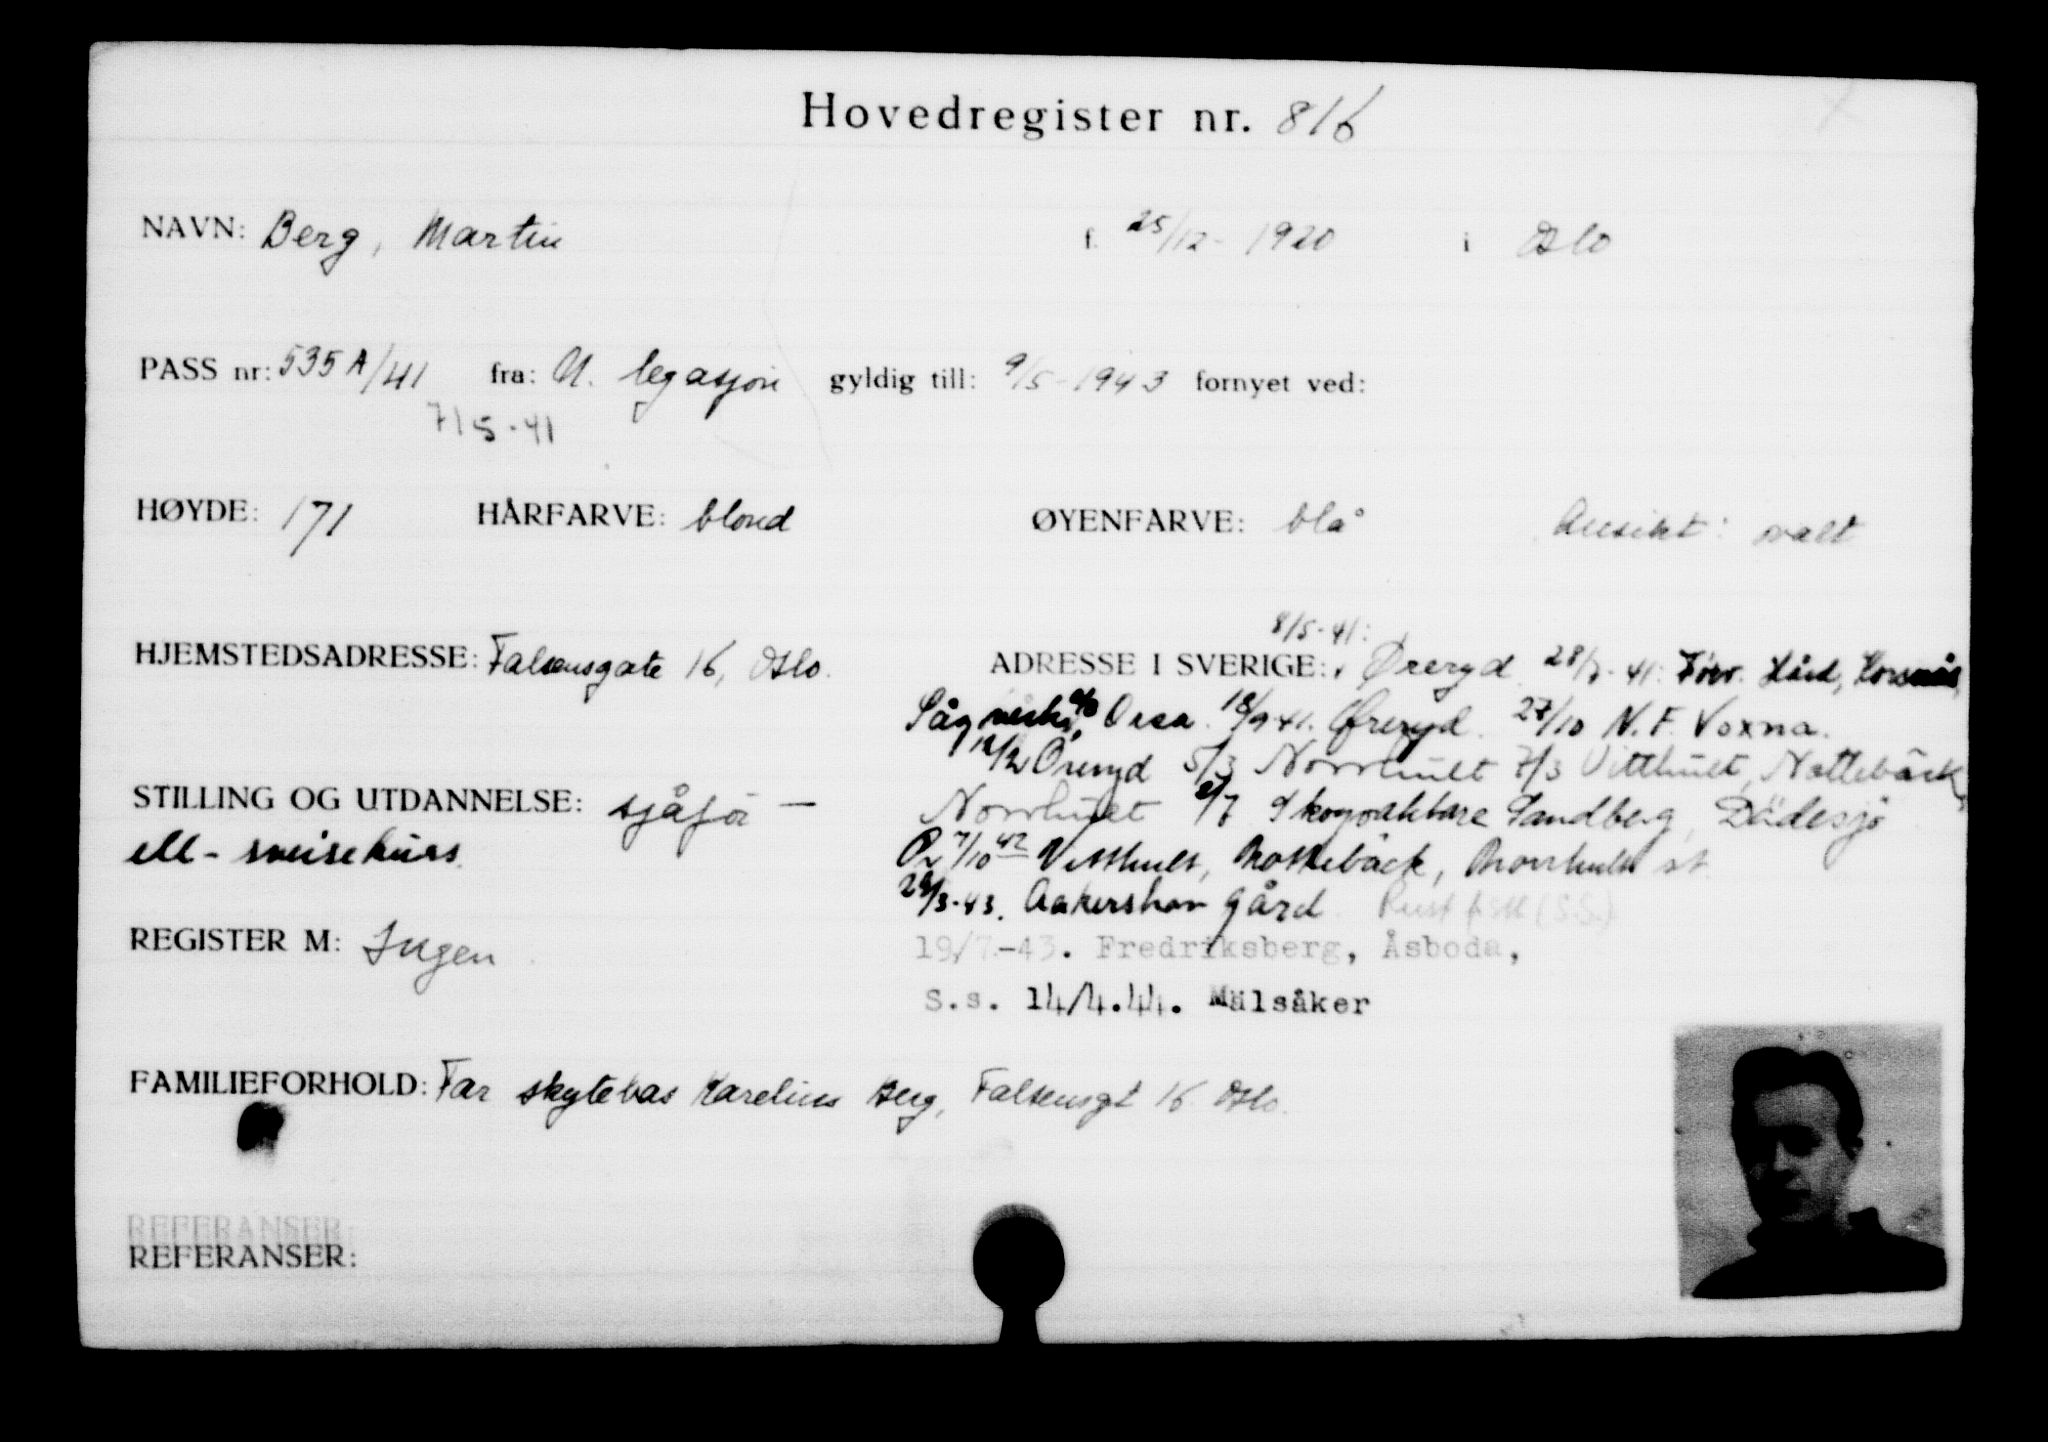 Hovedregister nr. 816
NAVN: Berg, Martin f. 25/12 - 1920 i Oslo
PASS nr: 535 A/41 fra: N. legasjon gyldig till: 9/5 - 1943 fornyet ved:
7/5-41
HØYDE: 171 HÅRFARVE: blond ØYENFARVE: blå Ansikt: ovalt
8/5-41:
HJEMSTEDSADRESSE: Falsensgate 16, Oslo. ADRESSE I SVERIGE: Øreryd 28/7-41: Hård, Korsnäs
Sågverks Orsa. 18/9 41. Øreryd. 27/10 N. F. Voxna.
Öreryd 5/3 Norrhult 7/3 Vitthult, Nottebäck,
STILLING OG UTDANNELSE: sjåfør — Norrhult 2/7 Skogvaktare Sandberg, Dädesjö
ell - sveisekurs. 7/10 42 Vitthult, Nottebäck, Norrhult st
29/3-43. Aakershov gård
REGISTER M: Ingen 19/7-43. Fredriksberg, Åsboda,
S.s. 14/4.44. Mälsåker
FAMILIEFORHOLD: Far skytebas Karelius Berg, Falsensgt 16 Oslo.
REFERANSER:
REFERANSER: